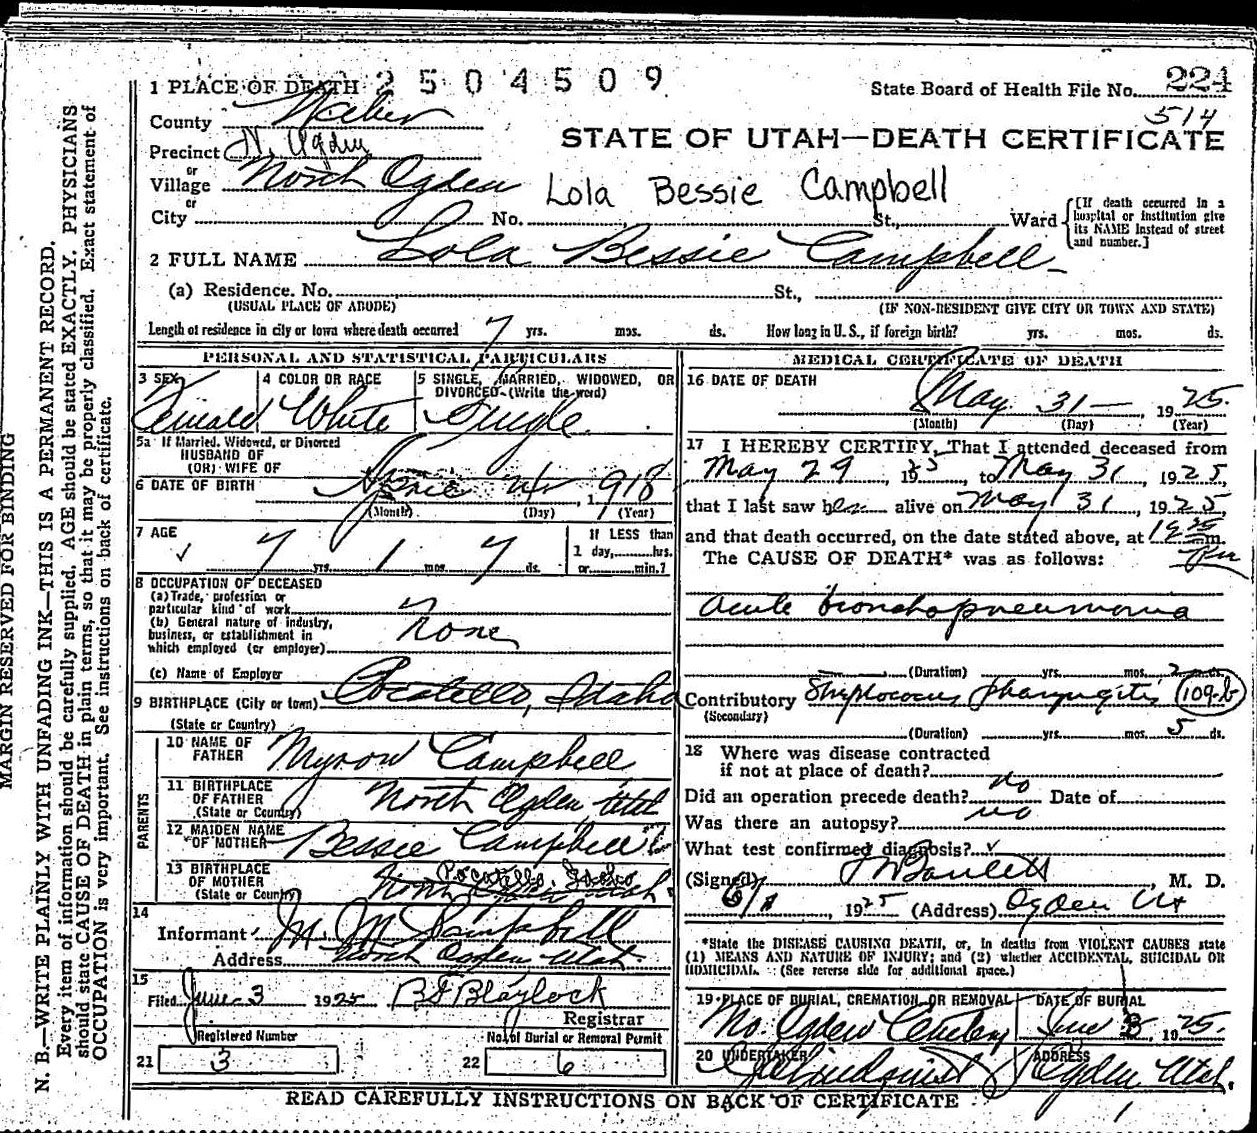 1 PLACE OF DEATH 2504509
State Board of Health File No. 224
514
County Weber
STATE OF UTAH—DEATH CERTIFICATE
Precinct N. Ogden
or
Village North Ogden
Lola Bessie Campbell
or
City No. St., Ward
[If death occurred in a hospital or institution give its NAME instead of street and number.]
2 FULL NAME Lola Bessie Campbell
(a) Residence. No. St.,
(USUAL PLACE OF ABODE) (IF NON-RESIDENT GIVE CITY OR TOWN AND STATE)
Length of residence in city or town where death occurred 7 yrs. mos. ds. How long in U.S., if foreign birth? yrs. mos. ds.
PERSONAL AND STATISTICAL PARTICULARS
3 SEX 4 COLOR OR RACE 5 SINGLE, MARRIED, WIDOWED, OR
DIVORCED (Write the word)
Female White Single
5a If Married, Widowed, or Divorced
HUSBAND OF
(OR) WIFE OF
6 DATE OF BIRTH 24 1918
(Month) (Day) (Year)
7 AGE
If LESS than
1 day, hrs.
7 yrs. 1 mos. 7 ds. or min.?
8 OCCUPATION OF DECEASED
(a) Trade, profession or
particular kind of work
(b) General nature of industry,
business, or establishment in
which employed (or employer)
None
(c) Name of Employer
9 BIRTHPLACE (City or town) Pocatello, Idaho
(State or Country)
PARENTS
10 NAME OF
FATHER Myron Campbell
11 BIRTHPLACE
OF FATHER North Ogden Utah
(State or Country)
12 MAIDEN NAME
OF MOTHER Bessie Campbell
13 BIRTHPLACE
OF MOTHER Pocatello, Idaho
(State or Country) North Ogden Utah
14
Informant M. M. Campbell
Address North Ogden Utah
15
Filed June 3 1925 Blaylock
Registrar
Registered Number No. of Burial or Removal Permit
21 3 22 6
MEDICAL CERTIFICATE OF DEATH
16 DATE OF DEATH
May 31 — , 1925
(Month) (Day) (Year)
17 I HEREBY CERTIFY, That I attended deceased from
May 29, 1925 to May 31, 1925
that I last saw her alive on May 31, 1925,
and that death occurred, on the date stated above, at m.
The CAUSE OF DEATH* was as follows:
Acute bronchopneumonia
(Duration) yrs. mos. 2 ds.
Contributory Streptococcus pharyngitis 109-b
(Secondary)
(Duration) yrs. mos. 5 ds.
18 Where was disease contracted
if not at place of death?
Did an operation precede death? no Date of
Was there an autopsy? no
What test confirmed diagnosis?
(Signed) , M. D.
, 1925 (Address) Ogden Ut
*State the DISEASE CAUSING DEATH, or, in deaths from VIOLENT CAUSES state
(1) MEANS AND NATURE OF INJURY; and (2) whether ACCIDENTAL, SUICIDAL OR
HOMICIDAL. (See reverse side for additional space.)
19 PLACE OF BURIAL, CREMATION, OR REMOVAL DATE OF BURIAL
No. Ogden Cemetery June 1925.
20 UNDERTAKER ADDRESS
Lindquist Ogden, Utah.
READ CAREFULLY INSTRUCTIONS ON BACK OF CERTIFICATE
MARGIN RESERVED FOR BINDING
N. B.—WRITE PLAINLY WITH UNFADING INK—THIS IS A PERMANENT RECORD.
Every item of information should be carefully supplied. AGE should be stated EXACTLY. PHYSICIANS
should state CAUSE OF DEATH in plain terms, so that it may be properly classified. Exact statement of
OCCUPATION is very important. See instructions on back of certificate.